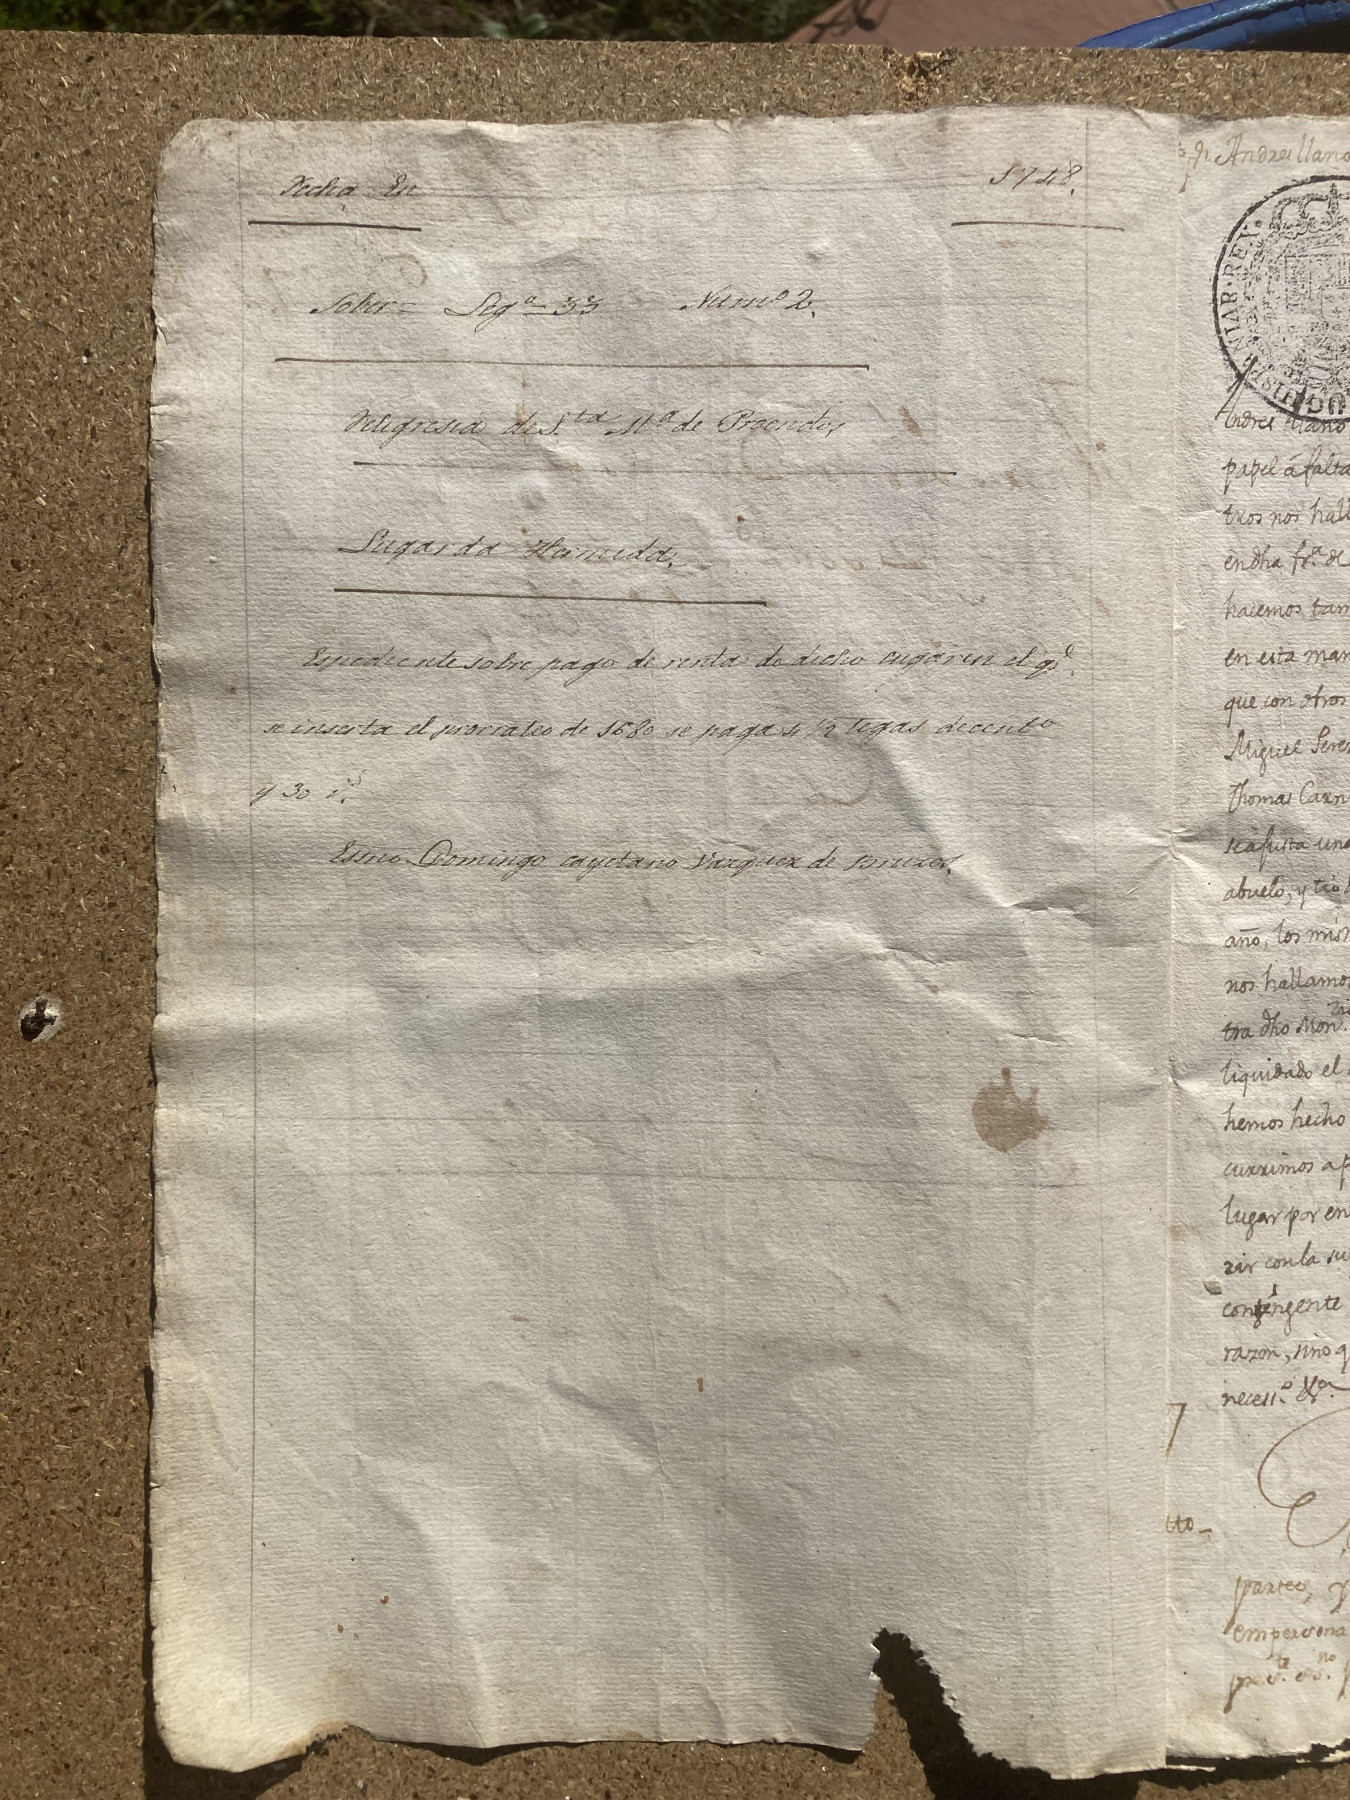 Fecha En 1748.
Sober = Leg.a 33 Num.o 2.
Feligresia de S.ta M.a de Proendos
Lugar da Hermida.
Espediente sobre pago de renta de dicho lugar en el q.e
se inserta el prorrateo de 1680 se paga 4 1/2 fegas de cent.o
y 30 r.s
Essno. Domingo Cayetano Vazquez de
Andres llano
HISP
NIAR·REX·
Andres llano
papel á falta
tros nos hall
en dha fr.a de
hacemos tam
en esta man
que con otros
Miguel Perez
Thomas Carn
se ajusta una
abuelo, y tio
año, los mism
nos hallamos
tra dho Mon
liquidado el
hemos hecho
currimos a p
lugar por en
rir con la su
contingente
razon, sino q
necess.o &.a
tto
partes, y
em persona